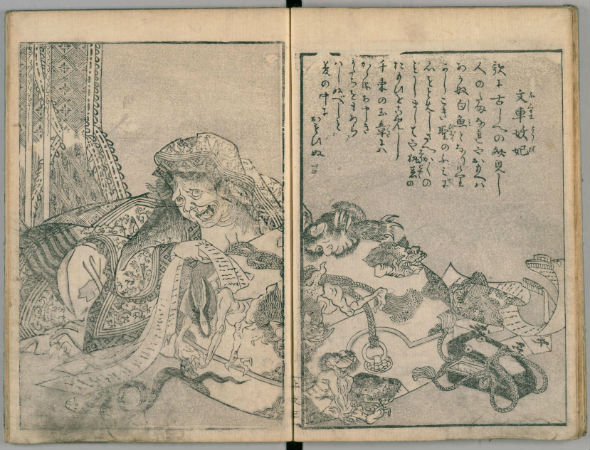 文車妖妃
歌に古しへの文見し
人のたまなれやおもへハ
あかぬ白魚となりけり
かしこき聖のふみに
心をとめしさへかくの
ごとしましてや執着の
おもひをこめし
千束の玉章には
かゝるあやしき
かたちをもあら
はしぬべしと
夢の中に
おもひぬ